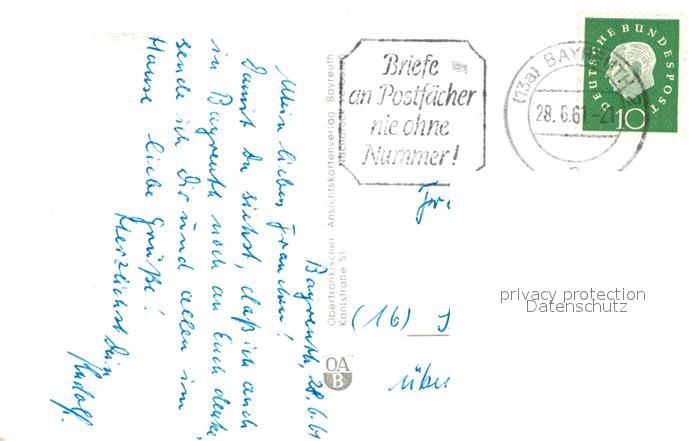 Bayreuth, 28.6.61
Mein liebes Frauchen!
Damit Du siehst, daß ich auch
in Bayreuth noch an Euch denke,
sende ich Dir und allen im
Hause liebe Grüße!
Herzlichst Dein
Rudolf.
Oberfränkischer Ansichtskartenverlag Bayreuth
Kantstraße 51
Nachdruck verboten
OA
B
Briefe
an Postfächer
nie ohne
Nummer!
(13a) BAYREUTH 2
28.6.61-21
DEUTSCHE BUNDESPOST
10
(16)
privacy protection
Datenschutz